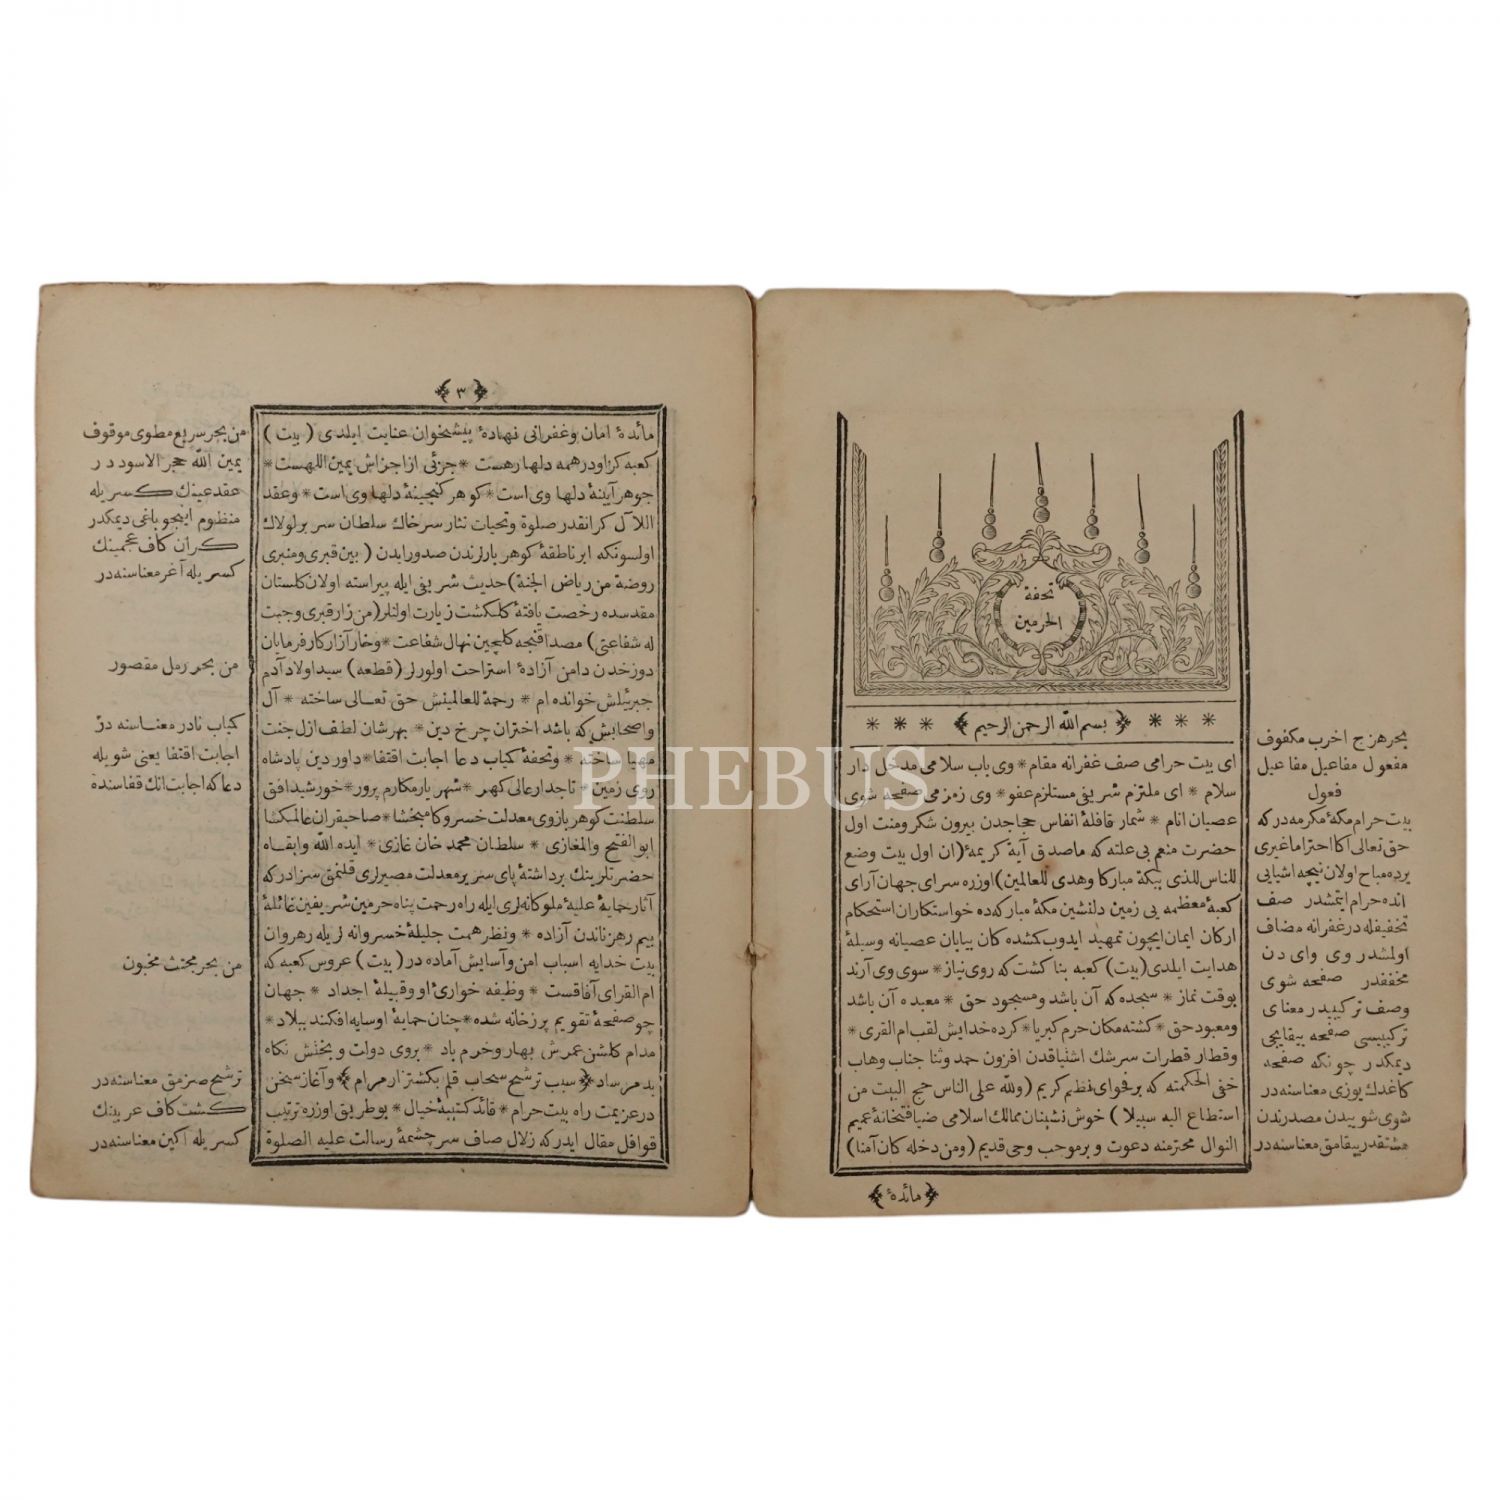 تحفة
الحرمين
بسم الله الرحمن الرحيم
ای بیت حرامی صف غفرانه مقام * وی باب سلامی مدخل دار
سلام * ای ملتزم شریفی مستلزم عفو * وی زمزمی صفحه شوی
عصیان انام * شمار قافلهٔ انفاس حجاجدن بیرون شکر ومنت اول
حضرت منعم بی علته که ماصدق آیهٔ کریمهٔ (ان اول بیت وضع
للناس للذی ببکة مبارکا وهدی للعالمین) اوزره سرای جهان آرای
کعبهٔ معظمه یی زمین دلنشین مکهٔ مبارکه ده خواستکاران استحکام
ارکان ایمان ایچون تمهید ایدوب کشده کان بیابان عصیانه وسیلهٔ
هدایت ایلدی (بیت) کعبه بنا کشت که روی نیاز * سوی وی آرند
بوقت نماز * سجده که آن باشد ومسجود حق * معبده آن باشد
ومعبود حق * کشته مکان حرم کبریا * کرده خدایش لقب ام القری *
وقطار قطرات سرشك اشتیاقدن افزون حمد وثنا جناب وهاب
خفی الحکمته که برفحوای نظم کریم (ولله علی الناس حج البیت من
استطاع الیه سبیلا) خوش نشینان ممالك اسلامی ضیافتخانهٔ عمیم
النوال محترمنه دعوت و برموجب وحی قدیم (ومن دخله کان آمنا)
مائدهٔ
بحر هزج اخرب مکفوف
مفعول مفاعیل مفاعیل
فعول
بیت حرام مکهٔ مکرمه در که
حق تعالی اکا احتراما غیری
یرده مباح اولان نیچه اشیایی
انده حرام ایتمشدر صف
تخفیفله در غفرانه مضاف
اولمشدر وی وای دن
مخففدر صفحه شوی
وصف ترکیبیدر معنای
ترکیبیسی صفحه ییقایجی
دیمکدر چونکه صفحه
کاغدك یوزی معناسنه در
شوی شوییدن مصدرندن
مشتقدر ییقامق معناسنه در
٣
مائدهٔ امان وغفرانی نهادهٔ پیشخوان عنایت ایلدی (بیت)
کعبه کزاو در همه دلها رهست * جزئی از اجزاش یمین اللهست *
جوهر آینهٔ دلها وی است * کوهر کنجینهٔ دلها وی است * وعقد
اللآل کرانقدر صلوة وتحیات نثار سر خاك سلطان سریر لولاك
اولسونکه ابر ناطقهٔ کوهر بارلرندن صدور ایدن (بین قبری ومنبری
روضة من ریاض الجنة) حدیث شریفی ایله پیراسته اولان کلستان
مقدسده رخصت یافتهٔ کلکشت زیارت اولنلر (من زار قبری وجبت
له شفاعتی) مصداقنجه کلچین نهال شفاعت * وخار آزار کارفرمایان
دوزخدن دامن آزادهٔ استراحت اولورلر (قطعه) سید اولاد آدم
جبرئیلش خوانده ام * رحمة للعالمینش حق تعالی ساخته * آل
واصحابش که باشد اختران چرخ دین * بهرشان لطف ازل جنت
مهیا ساخته * وتحفهٔ کیاب دعا اجابت اقتفا * داور دین پادشاه
روی زمین * تاجدار عالی کهر * شهریار مکارم پرور * خورشید افق
سلطنت کوهر بازوی معدلت خسرو کامبخشا * صاحبقران عالمکشا
ابو الفتح والمغازی * سلطان محمد خان غازی * ایده الله وابقاه
حضرتلرینك برداشتهٔ پای سریر معدلت مصیرلری قلنمق سزادر که
آثار حمایهٔ علیهٔ ملوکانه لری ایله راه رحمت پناه حرمین شریفین غائلهٔ
بیم رهزناندن آزاده * ونظر همت جلیلهٔ خسروانه لریله رهروان
بیت خدایه اسباب امن وآسایش آماده در (بیت) عروس کعبه که
ام القرای آفاقست * وظیفه خواری او وقبیلهٔ اجداد * جهان
چو صفحهٔ تقویم پرزخانه شده * چنان حمایهٔ او سایه افکند ببلاد *
مدام کلشن عمرش بهار وخرم باد * بروی دولت وبختش نکاه
بد مرساد سبب ترشیح سحاب قلم بکشتزار مرام وآغاز سخن
در عزیمت راه بیت حرام * قائد کتیبهٔ خیال * بوطریق اوزره ترتیب
قوافل مقال ایدر که زلال صاف سرچشمهٔ رسالت علیه الصلوة
من بحر سریع مطوی موقوف
یمین الله حجر الاسود در
عقد عینك کسریله
منظوم اینجو باغی دیمکدر
کران کاف عجمینك
کسریله آغر معناسنه در
من بحر رمل مقصور
کیاب نادر معناسنه در
اجابت اقتفا یعنی شویله
دعا که اجابت انك قفاسنده
من بحر مجتث مخبون
ترشیح صزمق معناسنه در
کشت کاف عربینك
کسریله اکین معناسنه در
PHEBUS